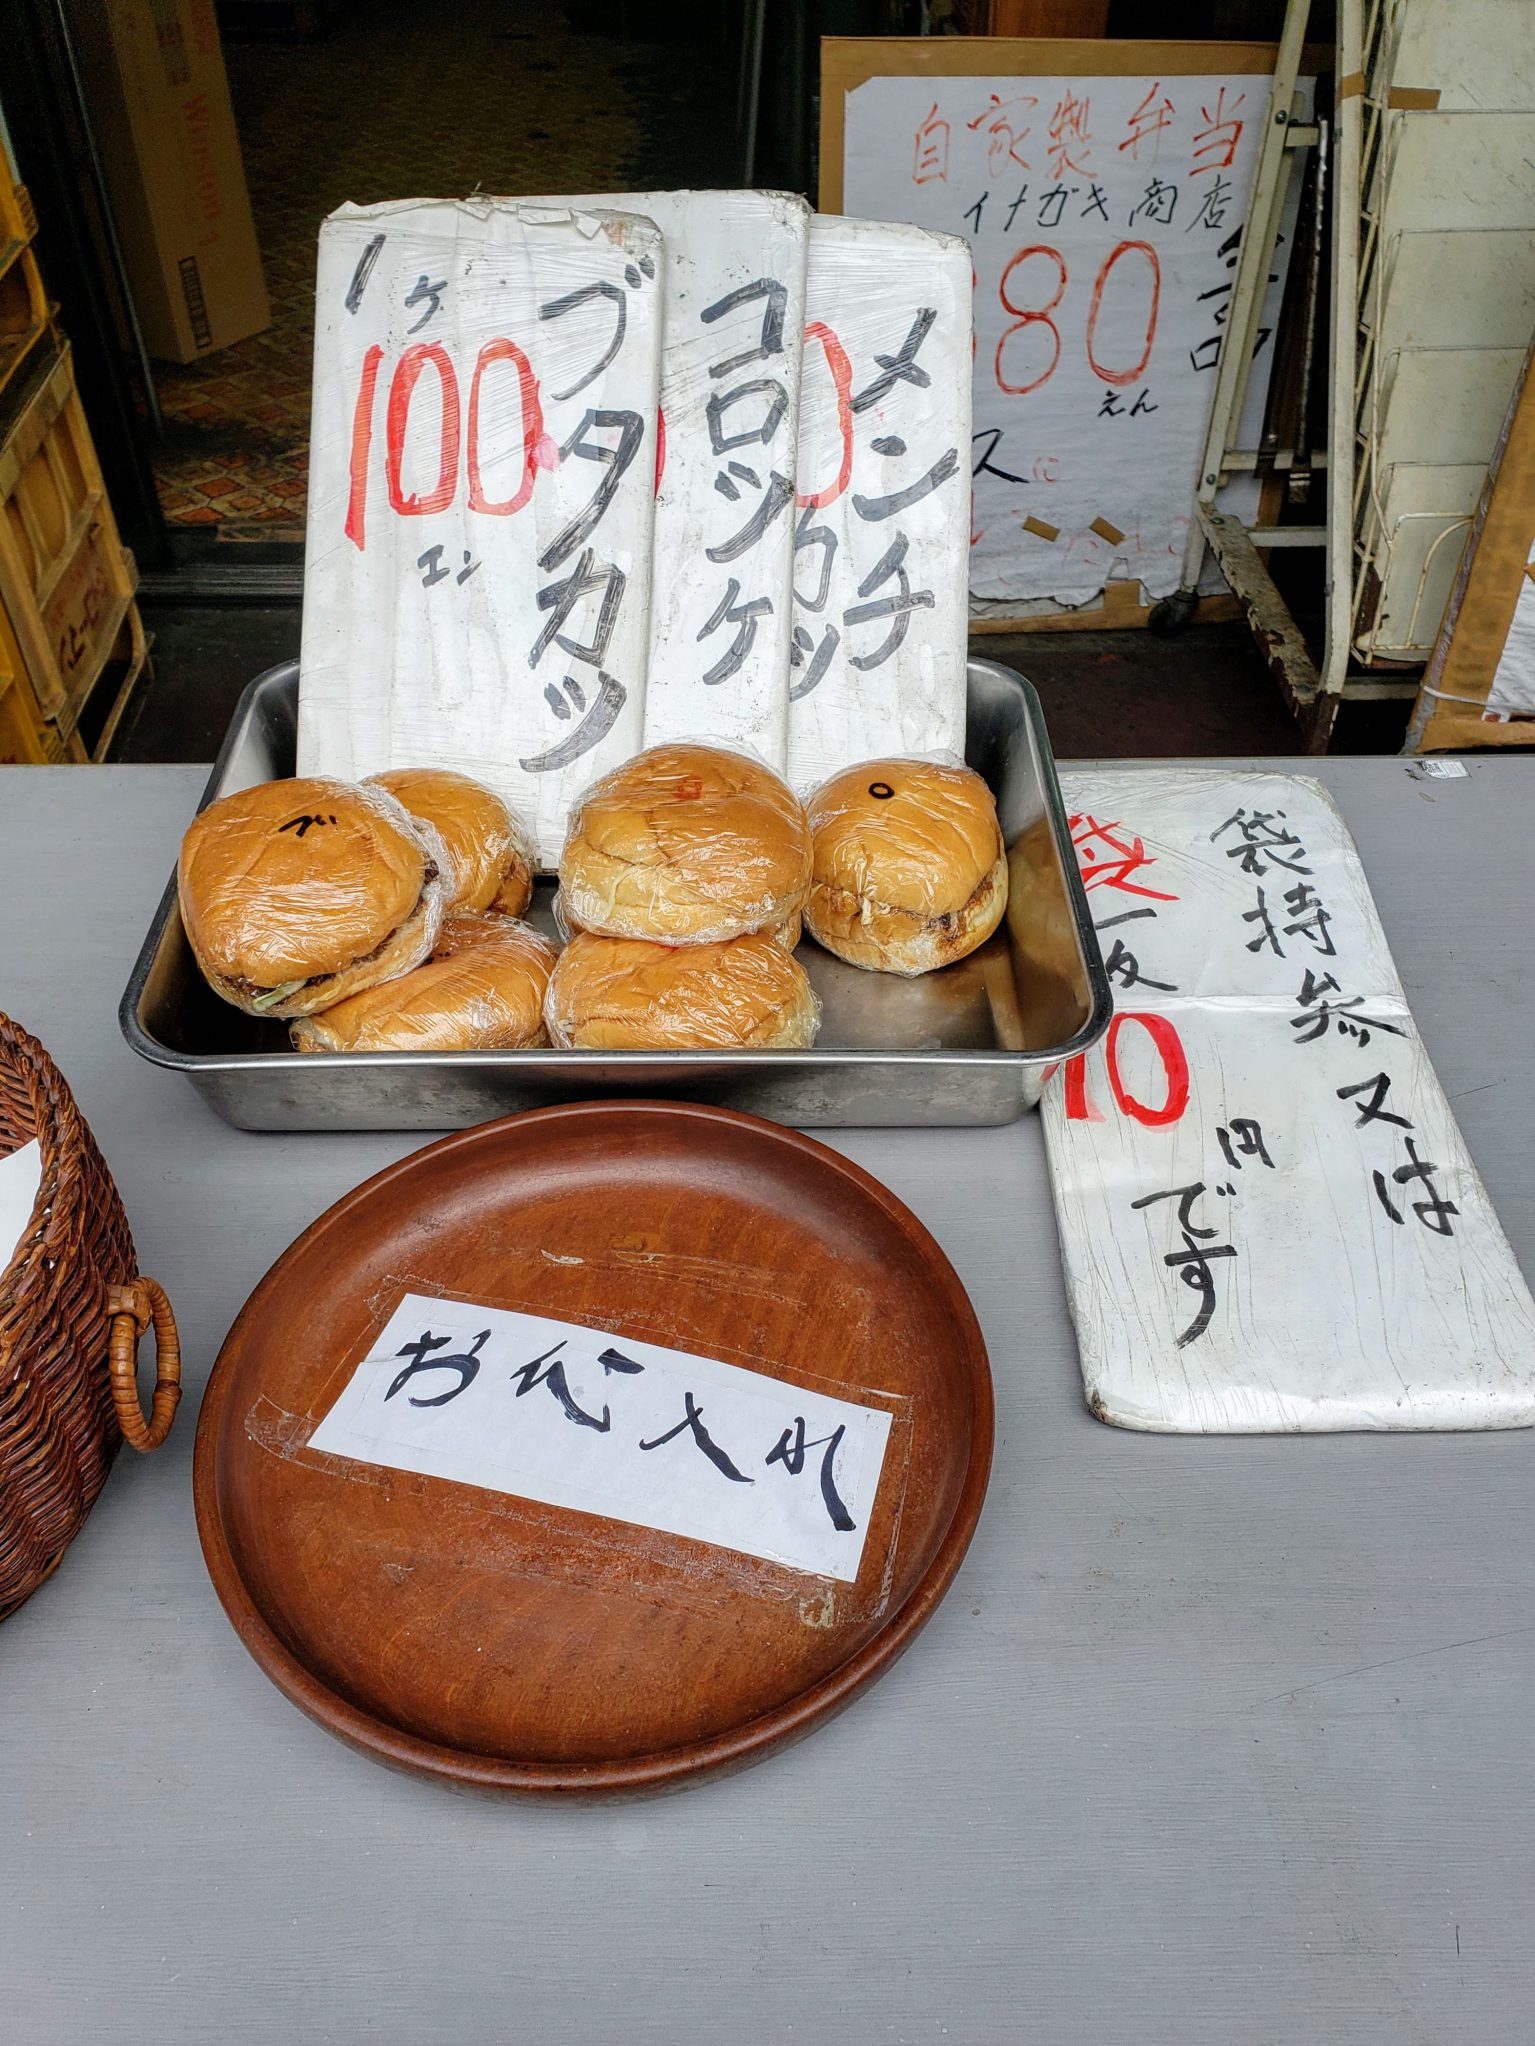 自家製弁当
イナガキ商店
80
えん
スに
1ヶ
100
エン
ブタカツ
コロッケ
メンチ
カツ
ブ
ロ
○
袋持参又は
袋一枚
10
円
です
お代入れ
Winston